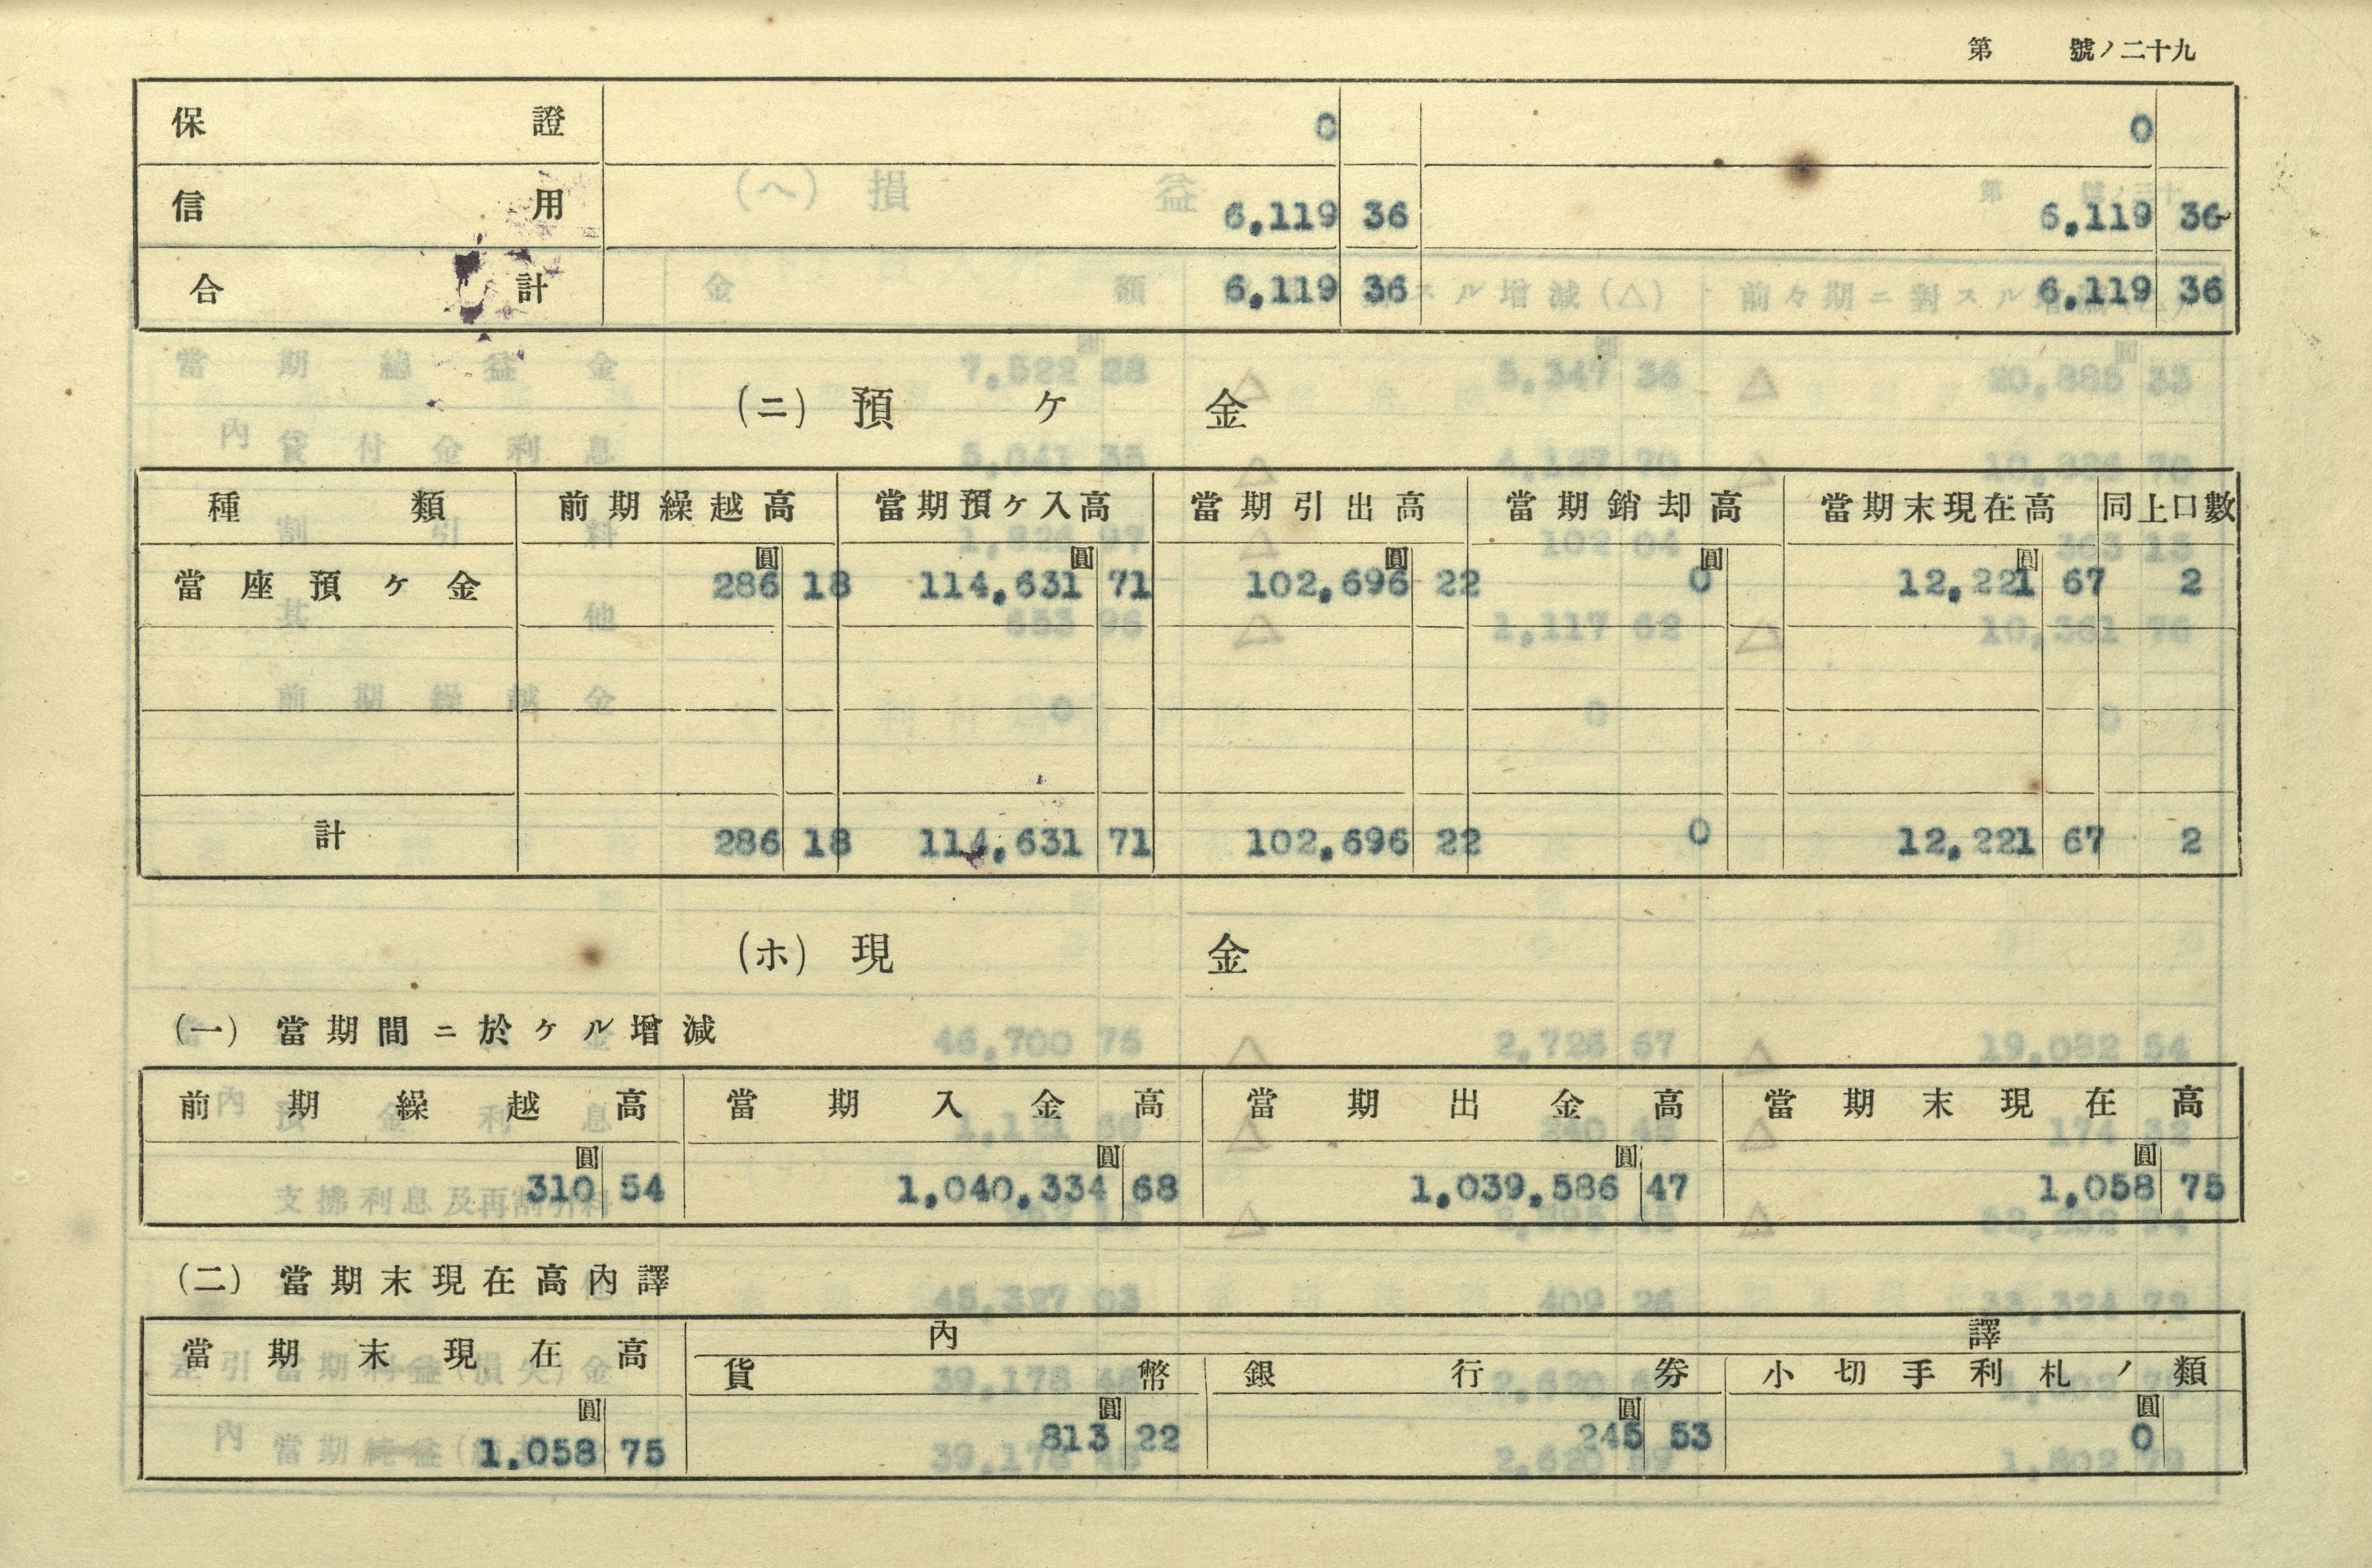 第　　號ノ二十九
保證 0 0
信用 6,119 36 6,119 36
合計 6,119 36 6,119 36
(ニ) 預ケ金
種類 前期繰越高 當期預ケ入高 當期引出高 當期銷却高 當期末現在高 同上口數
圓 圓 圓 圓 圓
當座預ケ金 286 18 114,631 71 102,696 22 0 12,221 67 2
計 286 18 114,631 71 102,696 22 0 12,221 67 2
(ホ) 現金
(一) 當期間ニ於ケル增減
前期繰越高 當期入金高 當期出金高 當期末現在高
圓 圓 圓 圓
310 54 1,040,334 68 1,039,586 47 1,058 75
(二) 當期末現在高內譯
當期末現在高 內譯
貨幣 銀行券 小切手利札ノ類
圓 圓 圓 圓
1,058 75 813 22 245 53 0